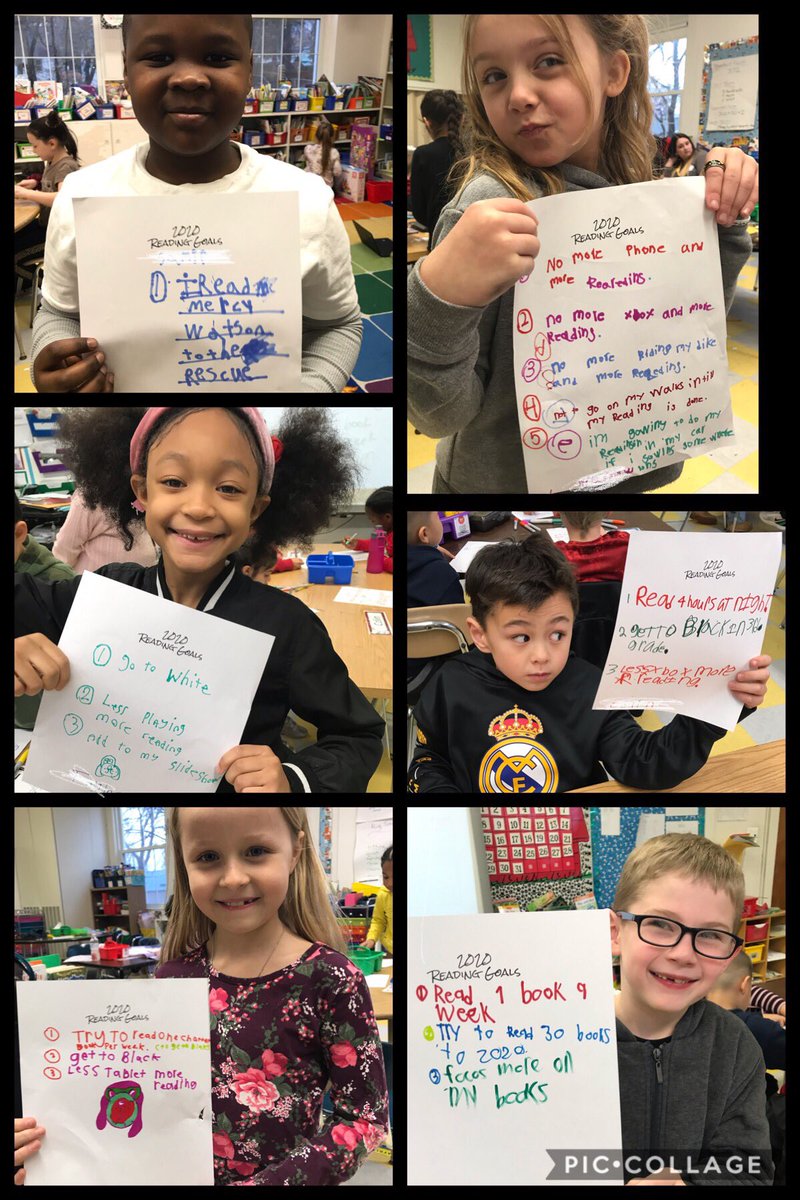 2020
READING GOALS
1. I Read
mercy
Watson
to the
RESCUE
2020
READING GOALS
No more Phone and
more Reareding.
2 no more xbox and more
Reading.
3 no more Riding my bike
and more Reading.
4 not to go on my Walks intill
my Reading is done.
5 im gowing to do my
Reading in my car
if i gowing some where
2020
READING GOALS
1 go to White
2 Less Playing
more reading
3 add to my slideshow
2020
READING GOALS
1 Read 4 hours at night
2 get to Black in 3rd
grade.
3. Less xbox more
reading.
2020
READING GOALS
1 TRY TO read one chapter
Book Per week.
2 get to Black
3 Less Tablet more
reading
2020
READING GOALS
1 Read 1 book a
week
2 TRY to Read 30 books
to 2020.
3 focas more on
books
PIC•COLLAGE